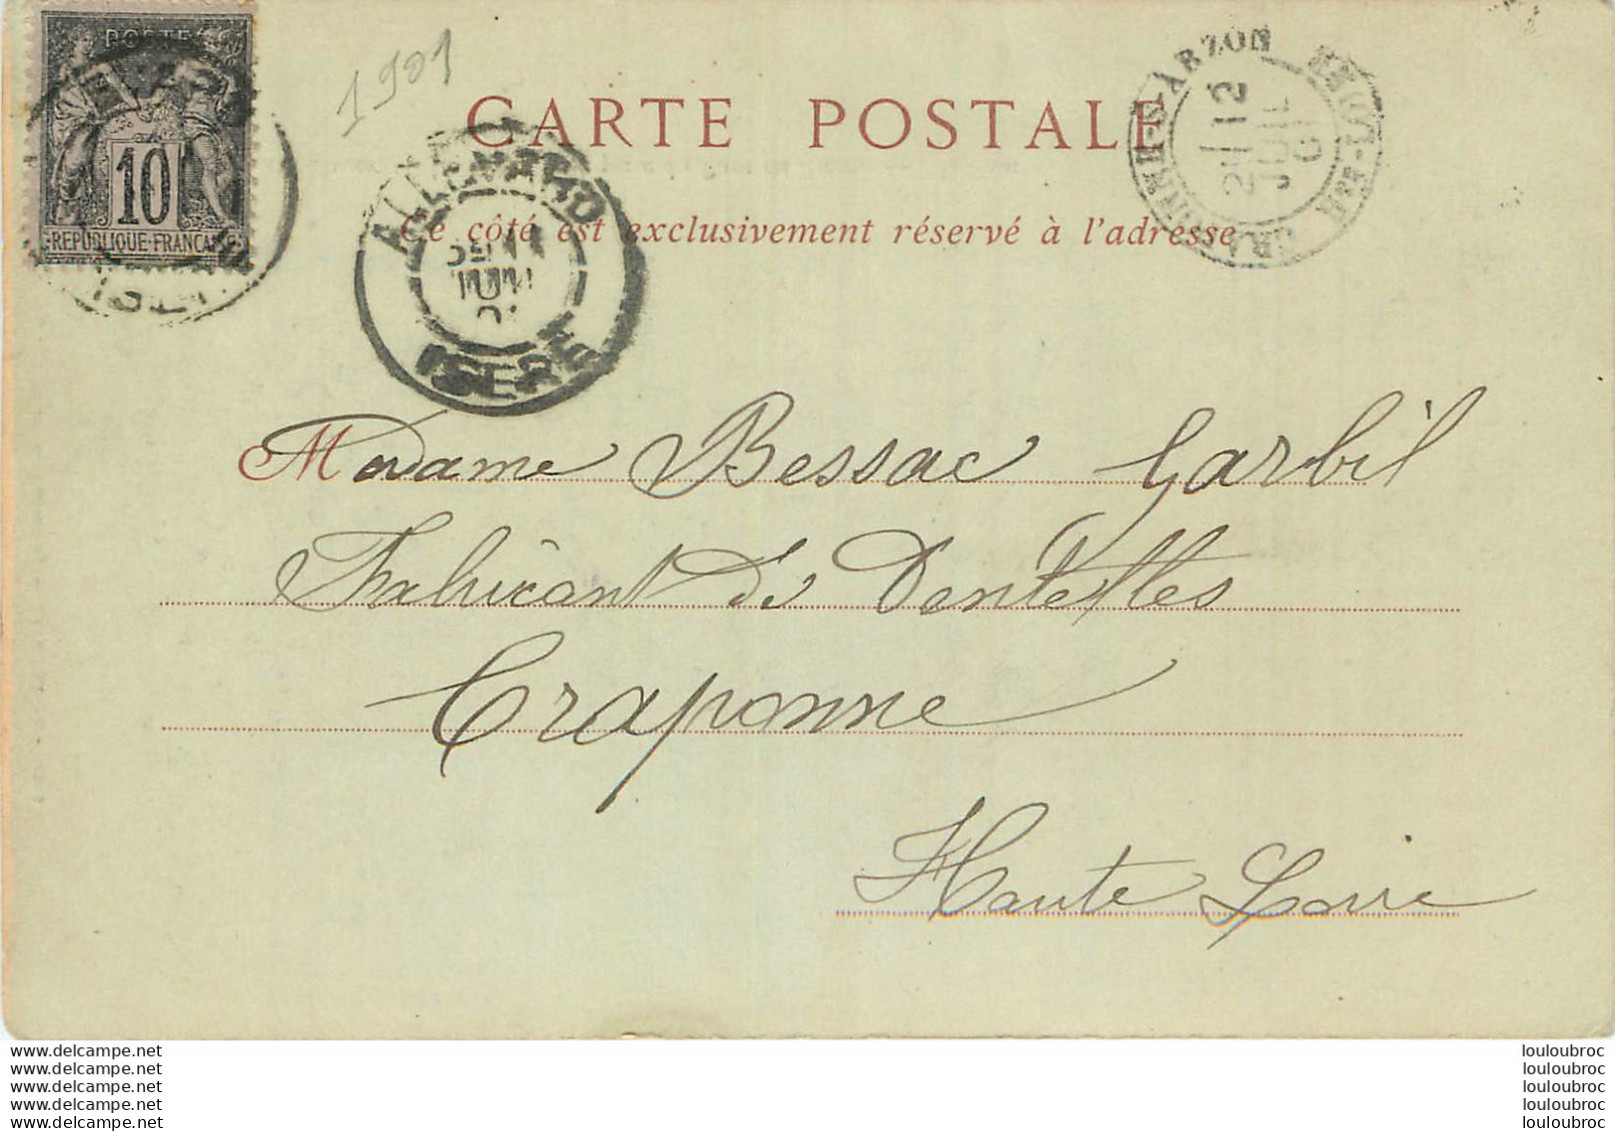 POSTES
10
REPUBLIQUE FRANÇAISE
1901
CARTE POSTALE
Ce côté est exclusivement réservé à l'adresse
ALLEVARD
ISERE
12
JUIL
01
HAUTE-LOIRE
Madame Bessac Garbil
Fabricant de Dentelles
Craponne
Haute Loire
www.delcampe.net
www.delcampe.net
www.delcampe.net
www.delcampe.net
www.delcampe.net
louloubroc
louloubroc
louloubroc
louloubroc
louloubroc